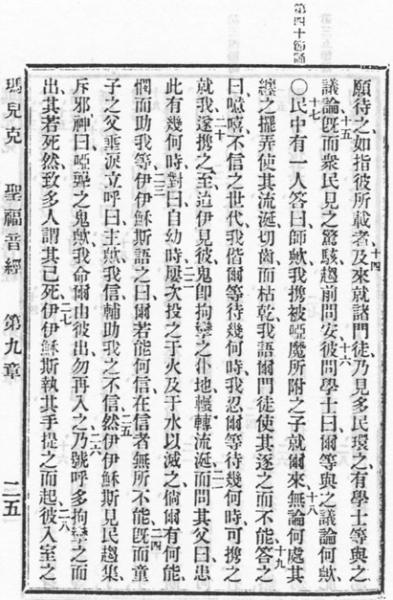 第四十節誦
願待之如指彼所載者十四及來就諸門徒乃見多民環之有學士等與之
議論十五旣而衆民見之驚駭趨前問安十六彼問學士曰爾等與之議論何歟
〇十七民中有一人答曰師歟我携被啞魔所附之子就爾來十八無論何處其
纏之擺弄使其流涎切齒而枯乾我語爾門徒使其逐之而不能十九答之
曰噫嘻不信之世代我偕爾等待幾何時我忍爾等待幾何時可携之
就我二十遂携之至迨伊見彼鬼即拘攣之仆地輾轉流涎二一而問其父曰患
此有幾何時對曰自幼時二二屢次投之于火及于水以滅之倘爾有何能
憫而助我等二三伊伊穌斯語之曰爾若能何信在信者無所不能二四旣而童
子之父垂淚立呼曰主歟我信輔助我之不信二五然伊伊穌斯見民趨集
斥邪神曰啞聾之鬼歟我命爾由彼出勿再入之二六乃號呼多拘攣之而
出其若死然致多人謂其已死二七伊伊穌斯執其手提之而起二八彼入室之
瑪兒克 聖福音經 第九章 二五